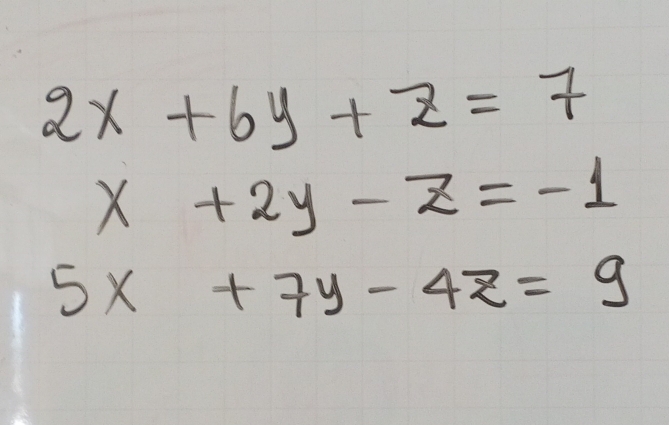 2x + 6y + z = 7
x + 2y - z = -1
5x + 7y - 4z = 9